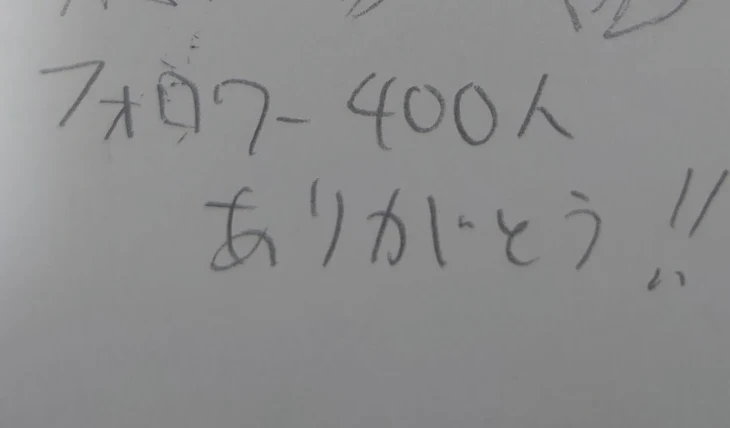 フォロワー400人
ありがとう!!